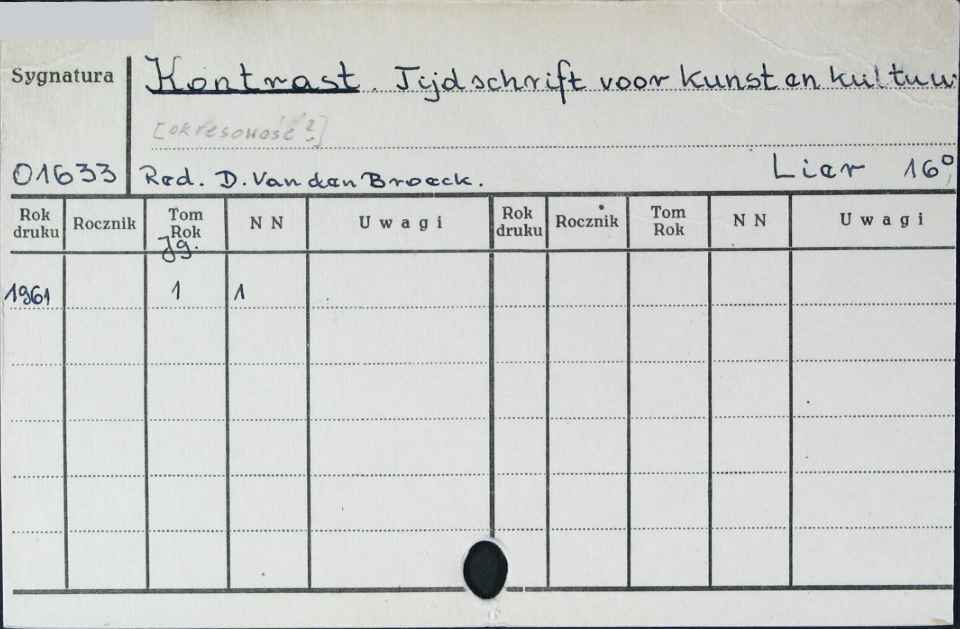 Sygnatura
Kontrast. Tijdschrift voor kunst en kultuur
[okresowość?]
01633 Red. D. Van den Broeck. Lier 16°
Rok druku Rocznik Tom Rok Jg. N N Uwagi Rok druku Rocznik Tom Rok N N Uwagi
1961 1 1